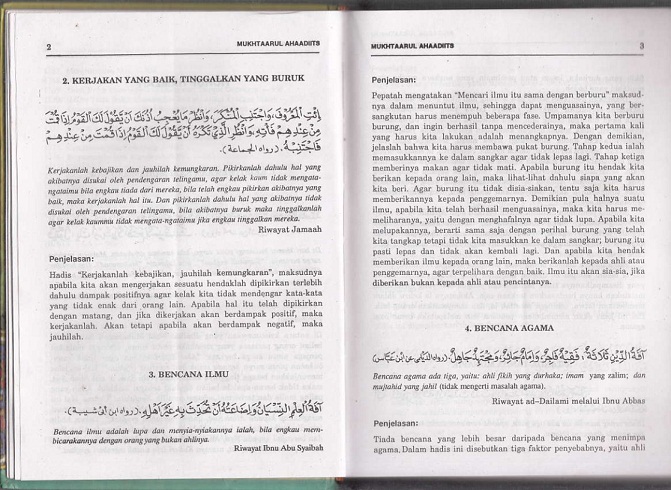 2
MUKHTAARUL AHAADIITS
2. KERJAKAN YANG BAIK, TINGGALKAN YANG BURUK
إِئْتِ الْمَعْرُوْفَ، وَاجْتَنِبِ الْمُنْكَرَ، وَانْظُرْ مَا يُعْجِبُ أُذُنَكَ أَنْ يَقُوْلَ لَكَ الْقَوْمُ إِذَا قُمْتَ
مِنْ عِنْدِهِمْ فَأْتِهِ، وَانْظُرِ الَّذِيْ تَكْرَهُ أَنْ يَقُوْلَ لَكَ الْقَوْمُ إِذَا قُمْتَ مِنْ عِنْدِهِمْ
فَاجْتَنِبْهُ. (رواه الجماعة)
Kerjakanlah kebajikan dan jauhilah kemungkaran. Pikirkanlah dahulu hal yang
akibatnya disukai oleh pendengaran telingamu, agar kelak kaum tidak mengata-
ngataimu bila engkau tiada dari mereka, bila telah engkau pikirkan akibatnya yang
baik, maka kerjakanlah hal itu. Dan pikirkanlah dahulu hal yang akibatnya tidak
disukai oleh pendengaran telingamu, bila akibatnya buruk maka tinggalkanlah
agar kelak kaummu tidak mengata-ngataimu jika engkau tinggalkan mereka.
Riwayat Jamaah
Penjelasan:
Hadis "Kerjakanlah kebajikan, jauhilah kemungkaran", maksudnya
apabila kita akan mengerjakan sesuatu hendaklah dipikirkan terlebih
dahulu dampak positifnya agar kelak kita tidak mendengar kata-kata
yang tidak enak dari orang lain. Apabila hal itu telah dipikirkan
dengan matang, dan jika dikerjakan akan berdampak positif, maka
kerjakanlah. Akan tetapi apabila akan berdampak negatif, maka
jauhilah.
3. BENCANA ILMU
آفَةُ الْعِلْمِ النِّسْيَانُ وَإِضَاعَتُهُ أَنْ تُحَدِّثَ بِهِ غَيْرَ أَهْلِهِ. (رواه ابن أبى شيبة).
Bencana ilmu adalah lupa dan menyia-nyiakannya ialah, bila engkau mem-
bicarakannya dengan orang yang bukan ahlinya.
Riwayat Ibnu Abu Syaibah
MUKHTAARUL AHAADIITS
3
Penjelasan:
Pepatah mengatakan "Mencari ilmu itu sama dengan berburu" maksud-
nya dalam menuntut ilmu, sehingga dapat menguasainya, yang ber-
sangkutan harus menempuh beberapa fase. Umpamanya kita berburu
burung, dan ingin berhasil tanpa mencederainya, maka pertama kali
yang harus kita lakukan adalah menangkapnya. Dengan demikian,
jelaslah bahwa kita harus membawa pukat burung. Tahap kedua ialah
memasukkannya ke dalam sangkar agar tidak lepas lagi. Tahap ketiga
memberinya makan agar tidak mati. Apabila burung itu hendak kita
berikan kepada orang lain, maka lihat-lihat dahulu siapa yang akan
kita beri. Agar burung itu tidak disia-siakan, tentu saja kita harus
memberikannya kepada penggemarnya. Demikian pula halnya suatu
ilmu, apabila kita telah berhasil menguasainya, maka kita harus me-
meliharanya, yaitu dengan menghafalnya agar tidak lupa. Apabila kita
melupakannya, berarti sama saja dengan perihal burung yang telah
kita tangkap tetapi tidak kita masukkan ke dalam sangkar; burung itu
pasti lepas dan tidak akan kembali lagi. Dan apabila kita hendak
memberikan ilmu kepada orang lain, maka berikanlah kepada ahli atau
penggemarnya, agar terpelihara dengan baik. Ilmu itu akan sia-sia, jika
diberikan bukan kepada ahli atau pencintanya.
4. BENCANA AGAMA
آفَةُ الدِّيْنِ ثَلَاثَةٌ، فَقِيْهٌ فَاجِرٌ، وَإِمَامٌ جَائِرٌ، وَمُجْتَهِدٌ جَاهِلٌ. (رواه الديلمى عن ابن عباس)
Bencana agama ada tiga, yaitu: ahli fikih yang durhaka; imam yang zalim; dan
mujtahid yang jahil (tidak mengerti masalah agama).
Riwayat ad-Dailami melalui Ibnu Abbas
Penjelasan:
Tiada bencana yang lebih besar daripada bencana yang menimpa
agama. Dalam hadis ini disebutkan tiga faktor penyebabnya, yaitu ahli